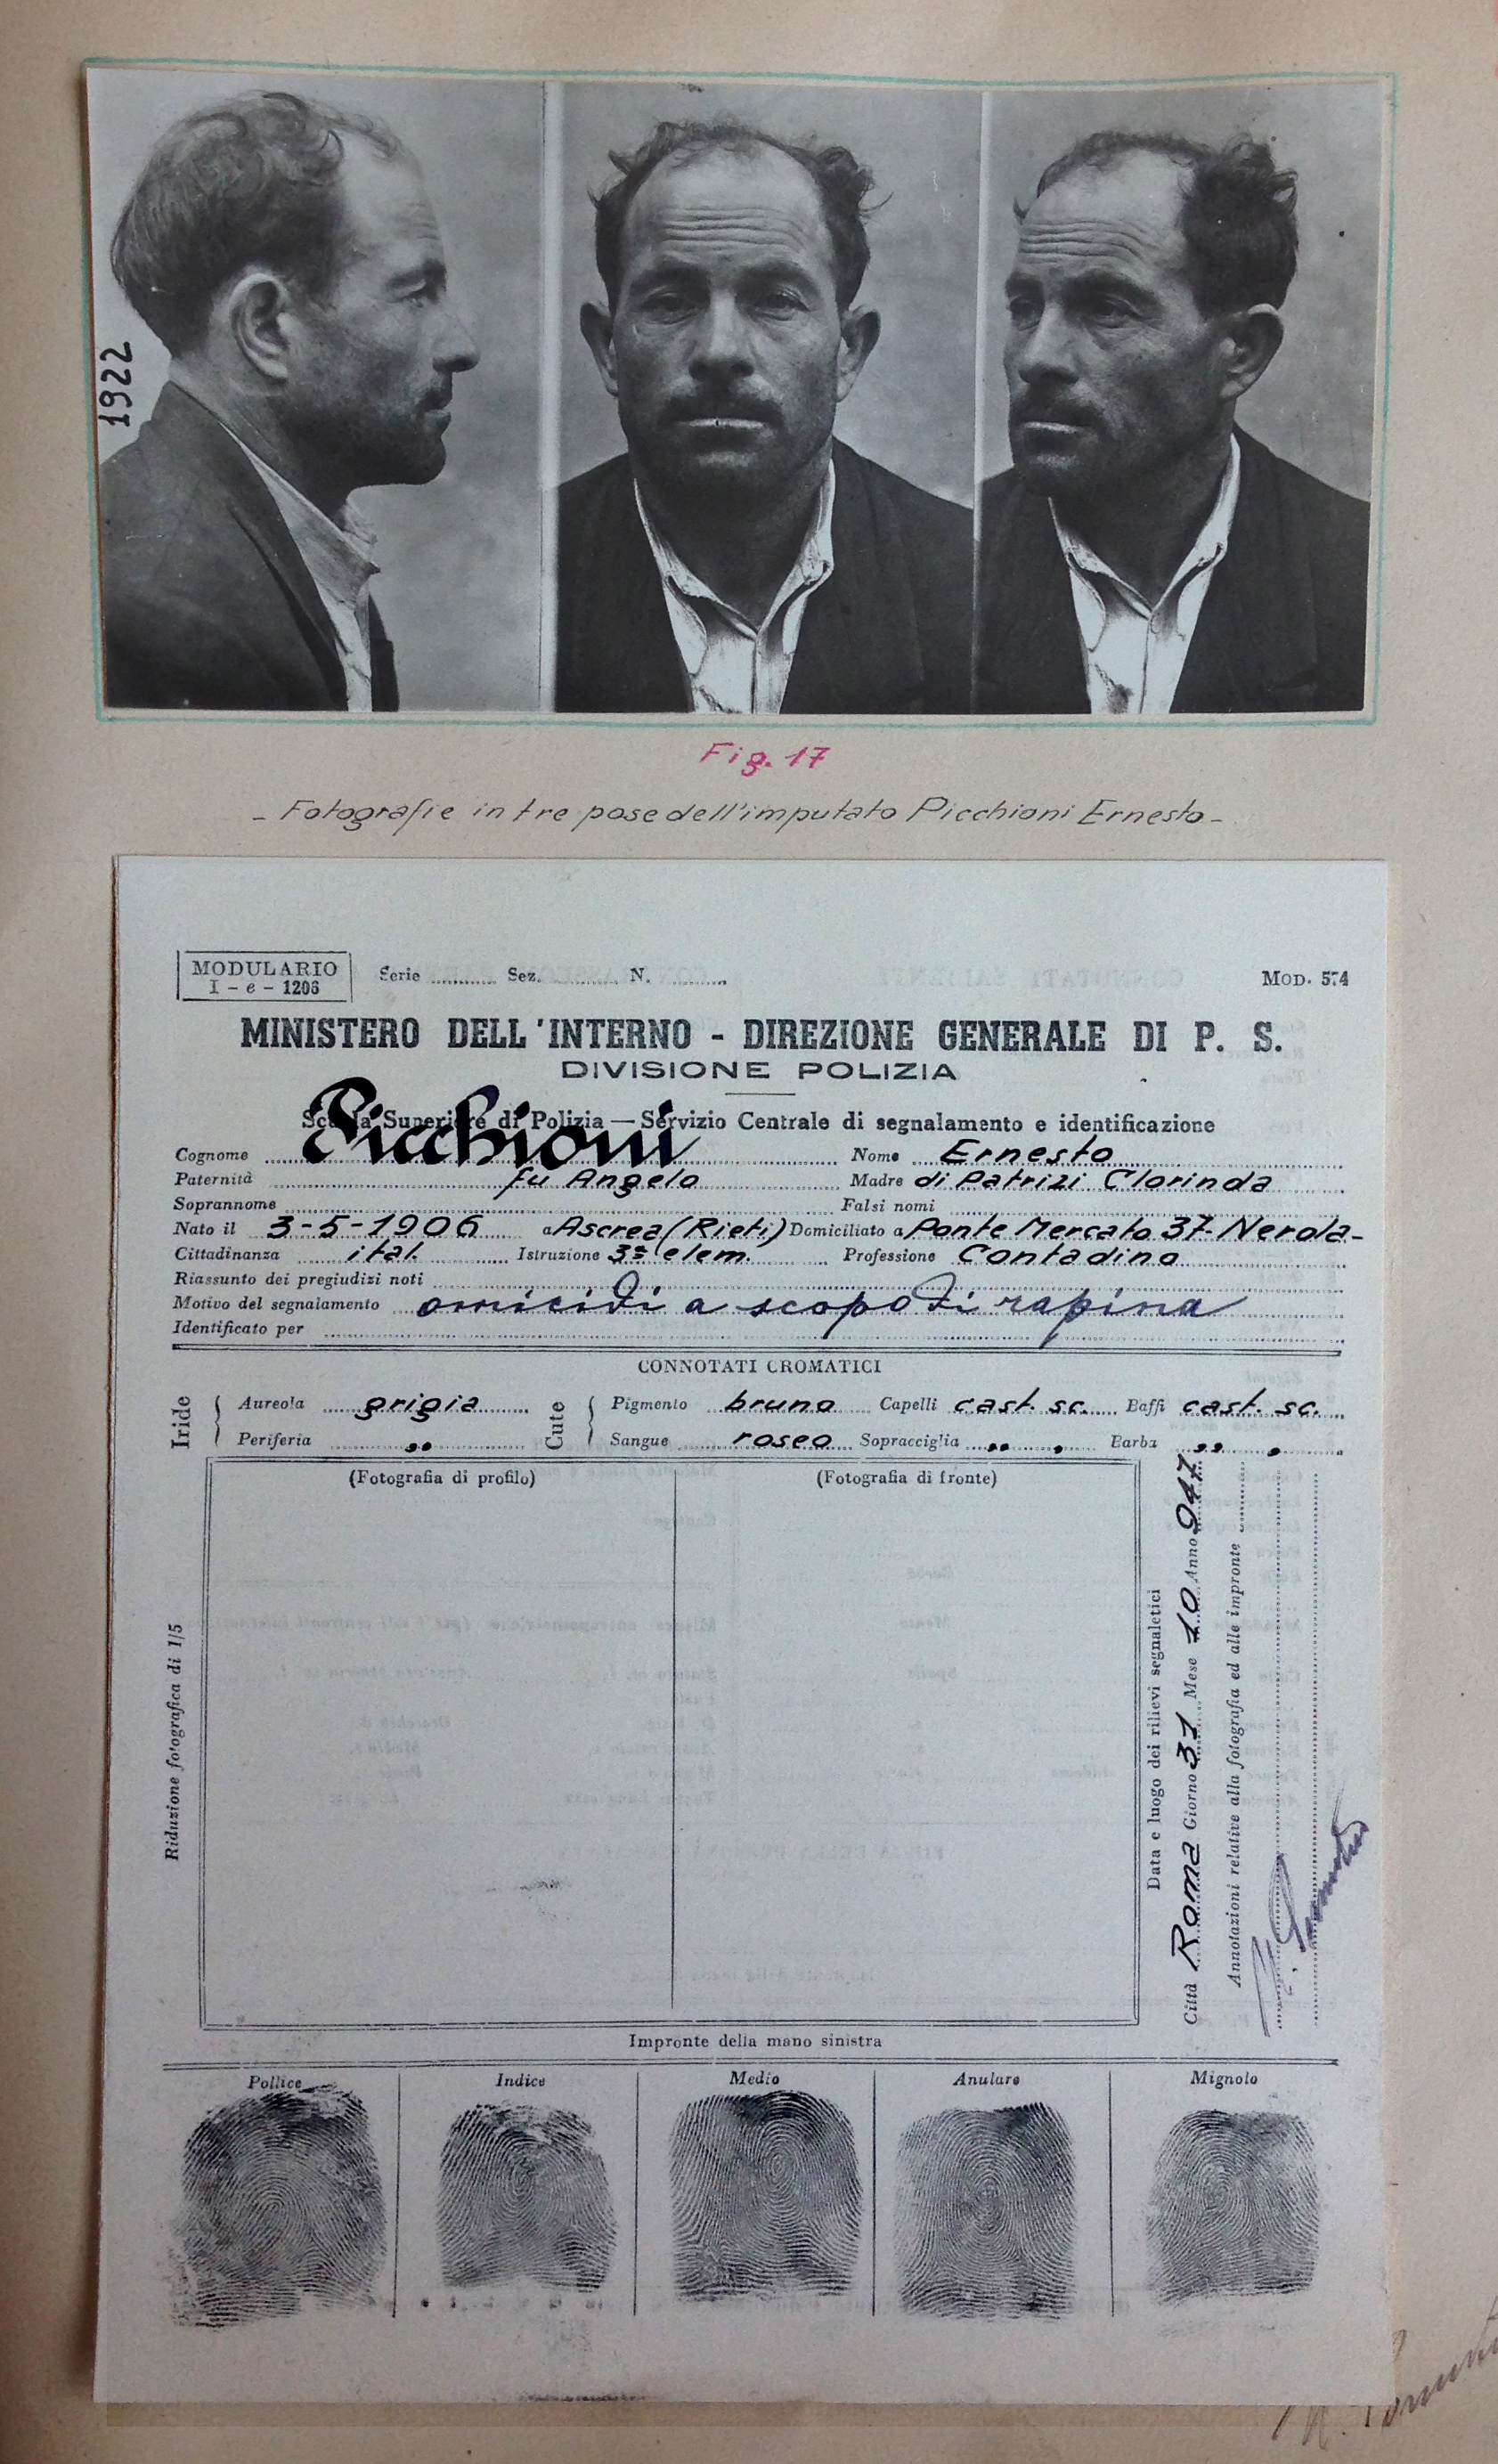 1922
Fig. 17
- Fotografie in tre pose dell'imputato Picchioni Ernesto -
MODULARIO
I - e - 1206
Serie ........ Sez. ........ N. ........
MOD. 574
MINISTERO DELL'INTERNO - DIREZIONE GENERALE DI P. S.
DIVISIONE POLIZIA
Scuola Superiore di Polizia — Servizio Centrale di segnalamento e identificazione
Cognome Picchioni Nome Ernesto
Paternità fu Angelo Madre di Patrizi Clorinda
Soprannome Falsi nomi
Nato il 3-5-1906 a Ascrea (Rieti) Domiciliato a Ponte Mercato 37- Nerola-
Cittadinanza ital. Istruzione 3ª elem. Professione Contadino
Riassunto dei pregiudizi noti
Motivo del segnalamento omicidi a scopo di rapina
Identificato per
CONNOTATI CROMATICI
Iride { Aureola grigia Cute { Pigmento bruno Capelli cast. sc. Baffi cast. sc.
Periferia " Sangue roseo Sopracciglia " " Barba " "
(Fotografia di profilo) (Fotografia di fronte)
Riduzione fotografica di 1/5
Data e luogo dei rilievi segnaletici
Città Roma Giorno 31 Mese 10 Anno 947
Annotazioni relative alla fotografia ed alle impronte
Impronte della mano sinistra
Pollice Indice Medio Anulare Mignolo